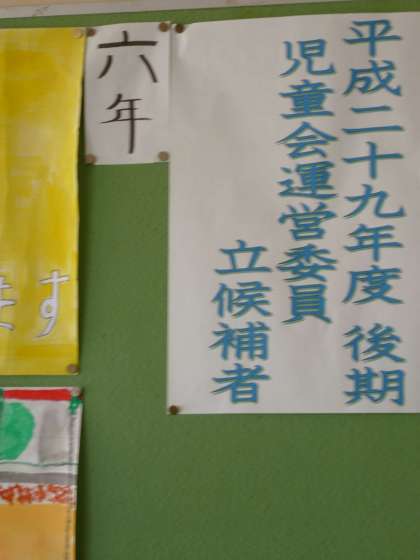 平成二十九年度 後期
児童会運営委員
立候補者
六年
ます